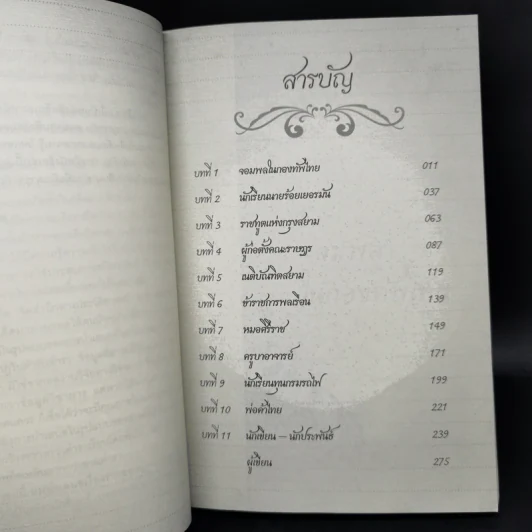 สารบัญ
บทที่ 1 จอมพลในกองทัพไทย 011
บทที่ 2 นักเรียนนายร้อยเยอรมัน 037
บทที่ 3 ราชทูตแห่งกรุงสยาม 063
บทที่ 4 ผู้ก่อตั้งคณะราษฎร 087
บทที่ 5 เนติบัณฑิตสยาม 119
บทที่ 6 ข้าราชการพลเรือน 139
บทที่ 7 หมอศิริราช 149
บทที่ 8 ครูบาอาจารย์ 171
บทที่ 9 นักเรียนทุนกรมรถไฟ 199
บทที่ 10 พ่อค้าไทย 221
บทที่ 11 นักเขียน – นักประพันธ์ 239
ผู้เขียน 275